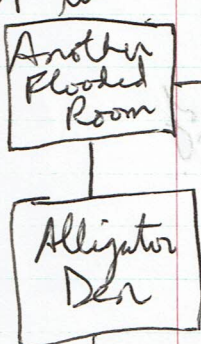 Another
Flooded
Room
Alligator
Den